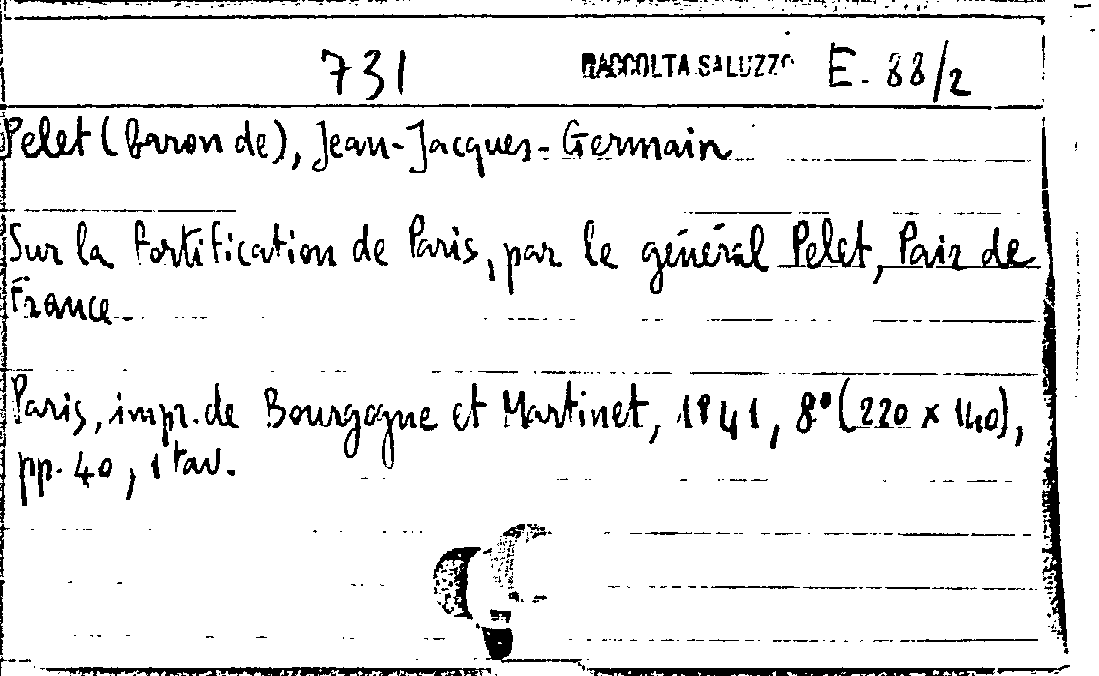 731 RACCOLTA SALUZZO E. 88/2
Pelet (baron de), Jean-Jacques-Germain
Sur la fortification de Paris, par le général Pelet, Pair de
France.
Paris, impr. de Bourgogne et Martinet, 1841, 8° (220 x 140),
pp. 40, 1 tav.